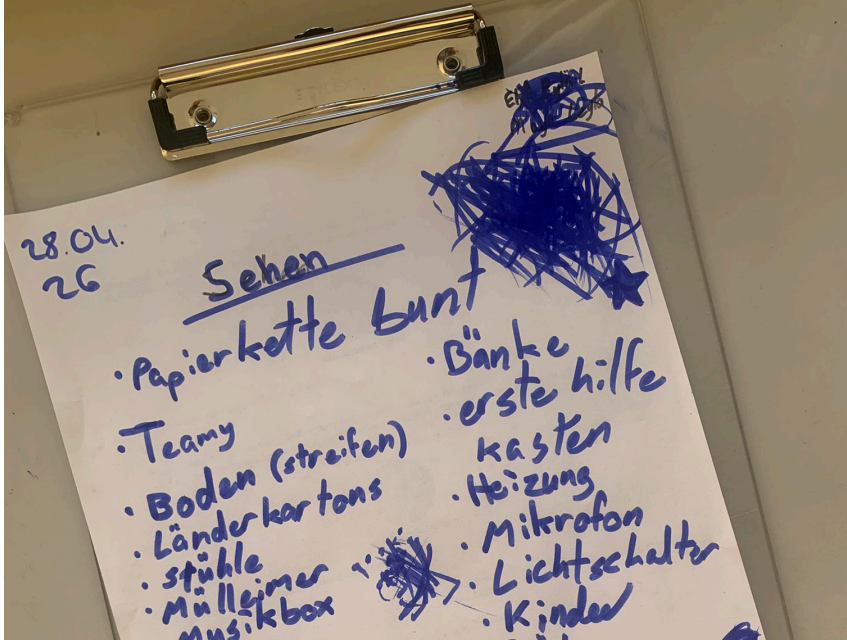 28.04.
26
Sehen
• Papierkette bunt
• Teamy
• Boden (streifen)
• Länderkartons
• stühle
• Mülleimer
Musikbox
• Bänke
• erste hilfe
kasten
• Heizung
• Mikrofon
• Lichtschalter
• Kinder